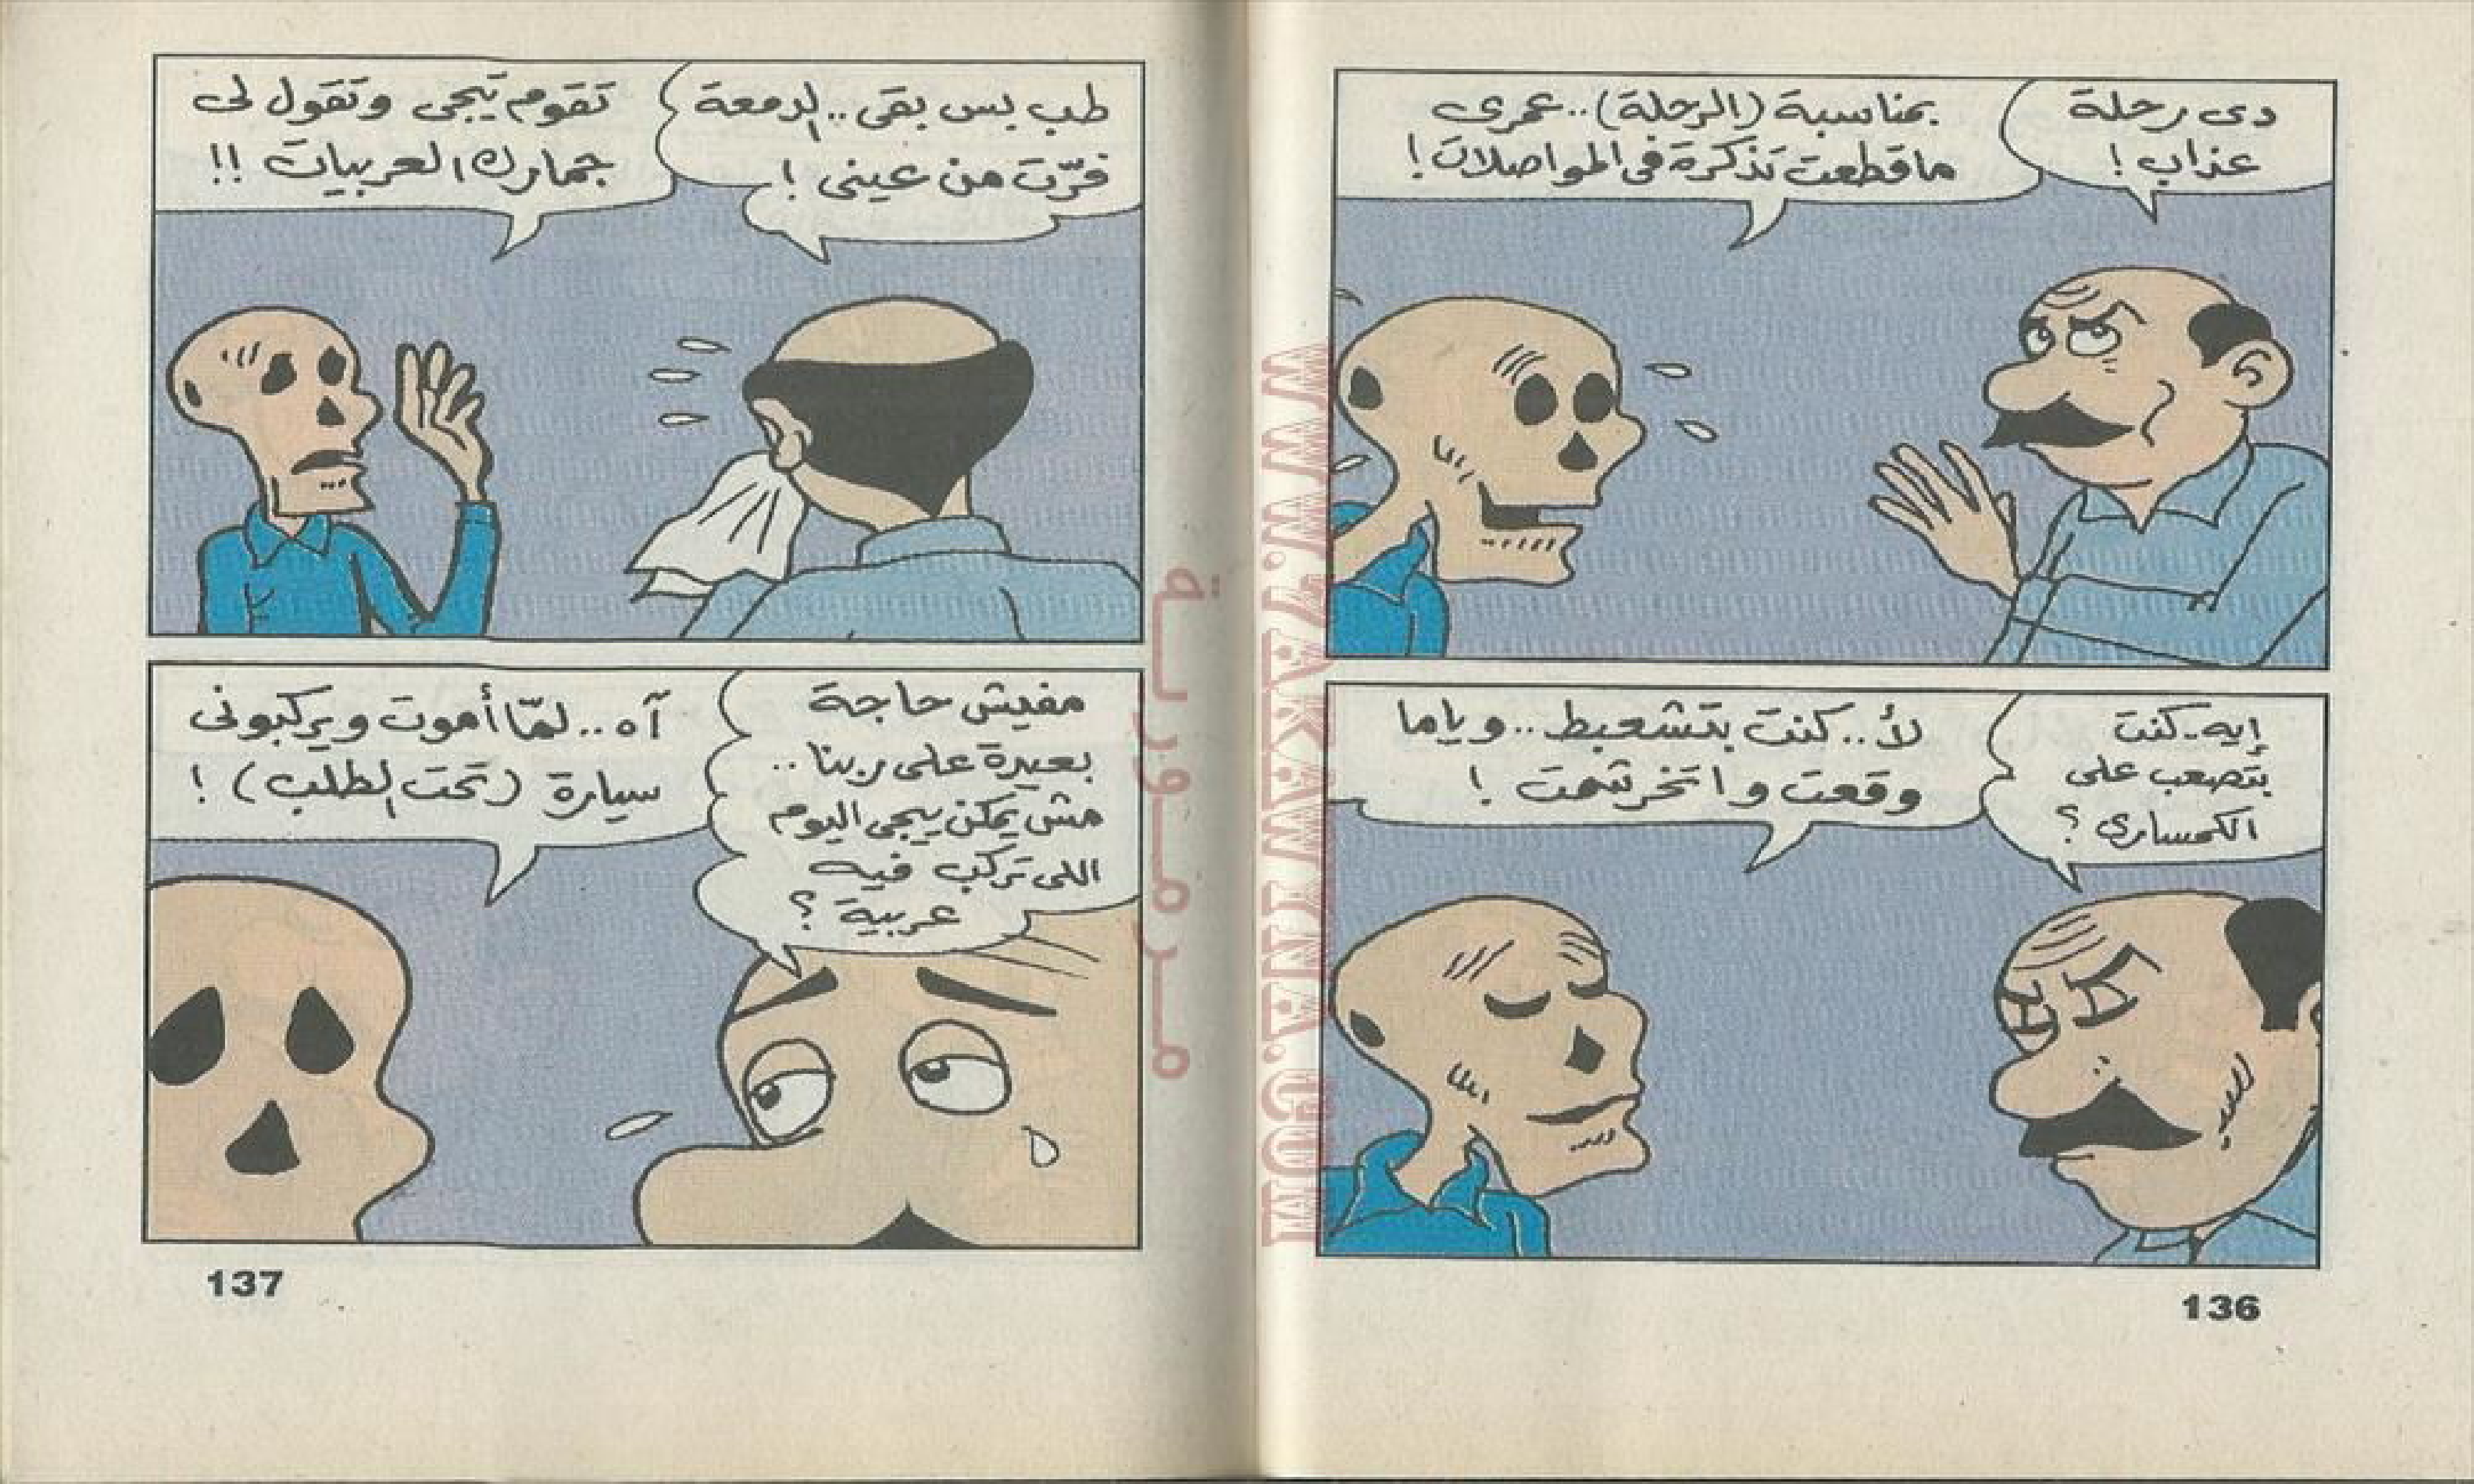 دى رحلة
عذاب !
بمناسبة (الرحلة)..عمرى
ماقطعت تذكرة فى المواصلات !
إيه.كنت
بتصعب على
الكمسارى ؟
لأ..كنت بتشعبط..وياما
وقعت واتخرشمت !
136
طب بس بقى..الدمعة
فرّت من عينى !
تقوم تيجى وتقول لى
جمارك العربيات !!
مفيش حاجة
بعيدة على ربنا..
مش يمكن ييجى اليوم
اللى تركب فيه
عربية ؟
آه..لمّا أموت ويركبونى
سيارة (تحت الطلب) !
137
WWW.VAKAWKAWA.COM
مرمورية